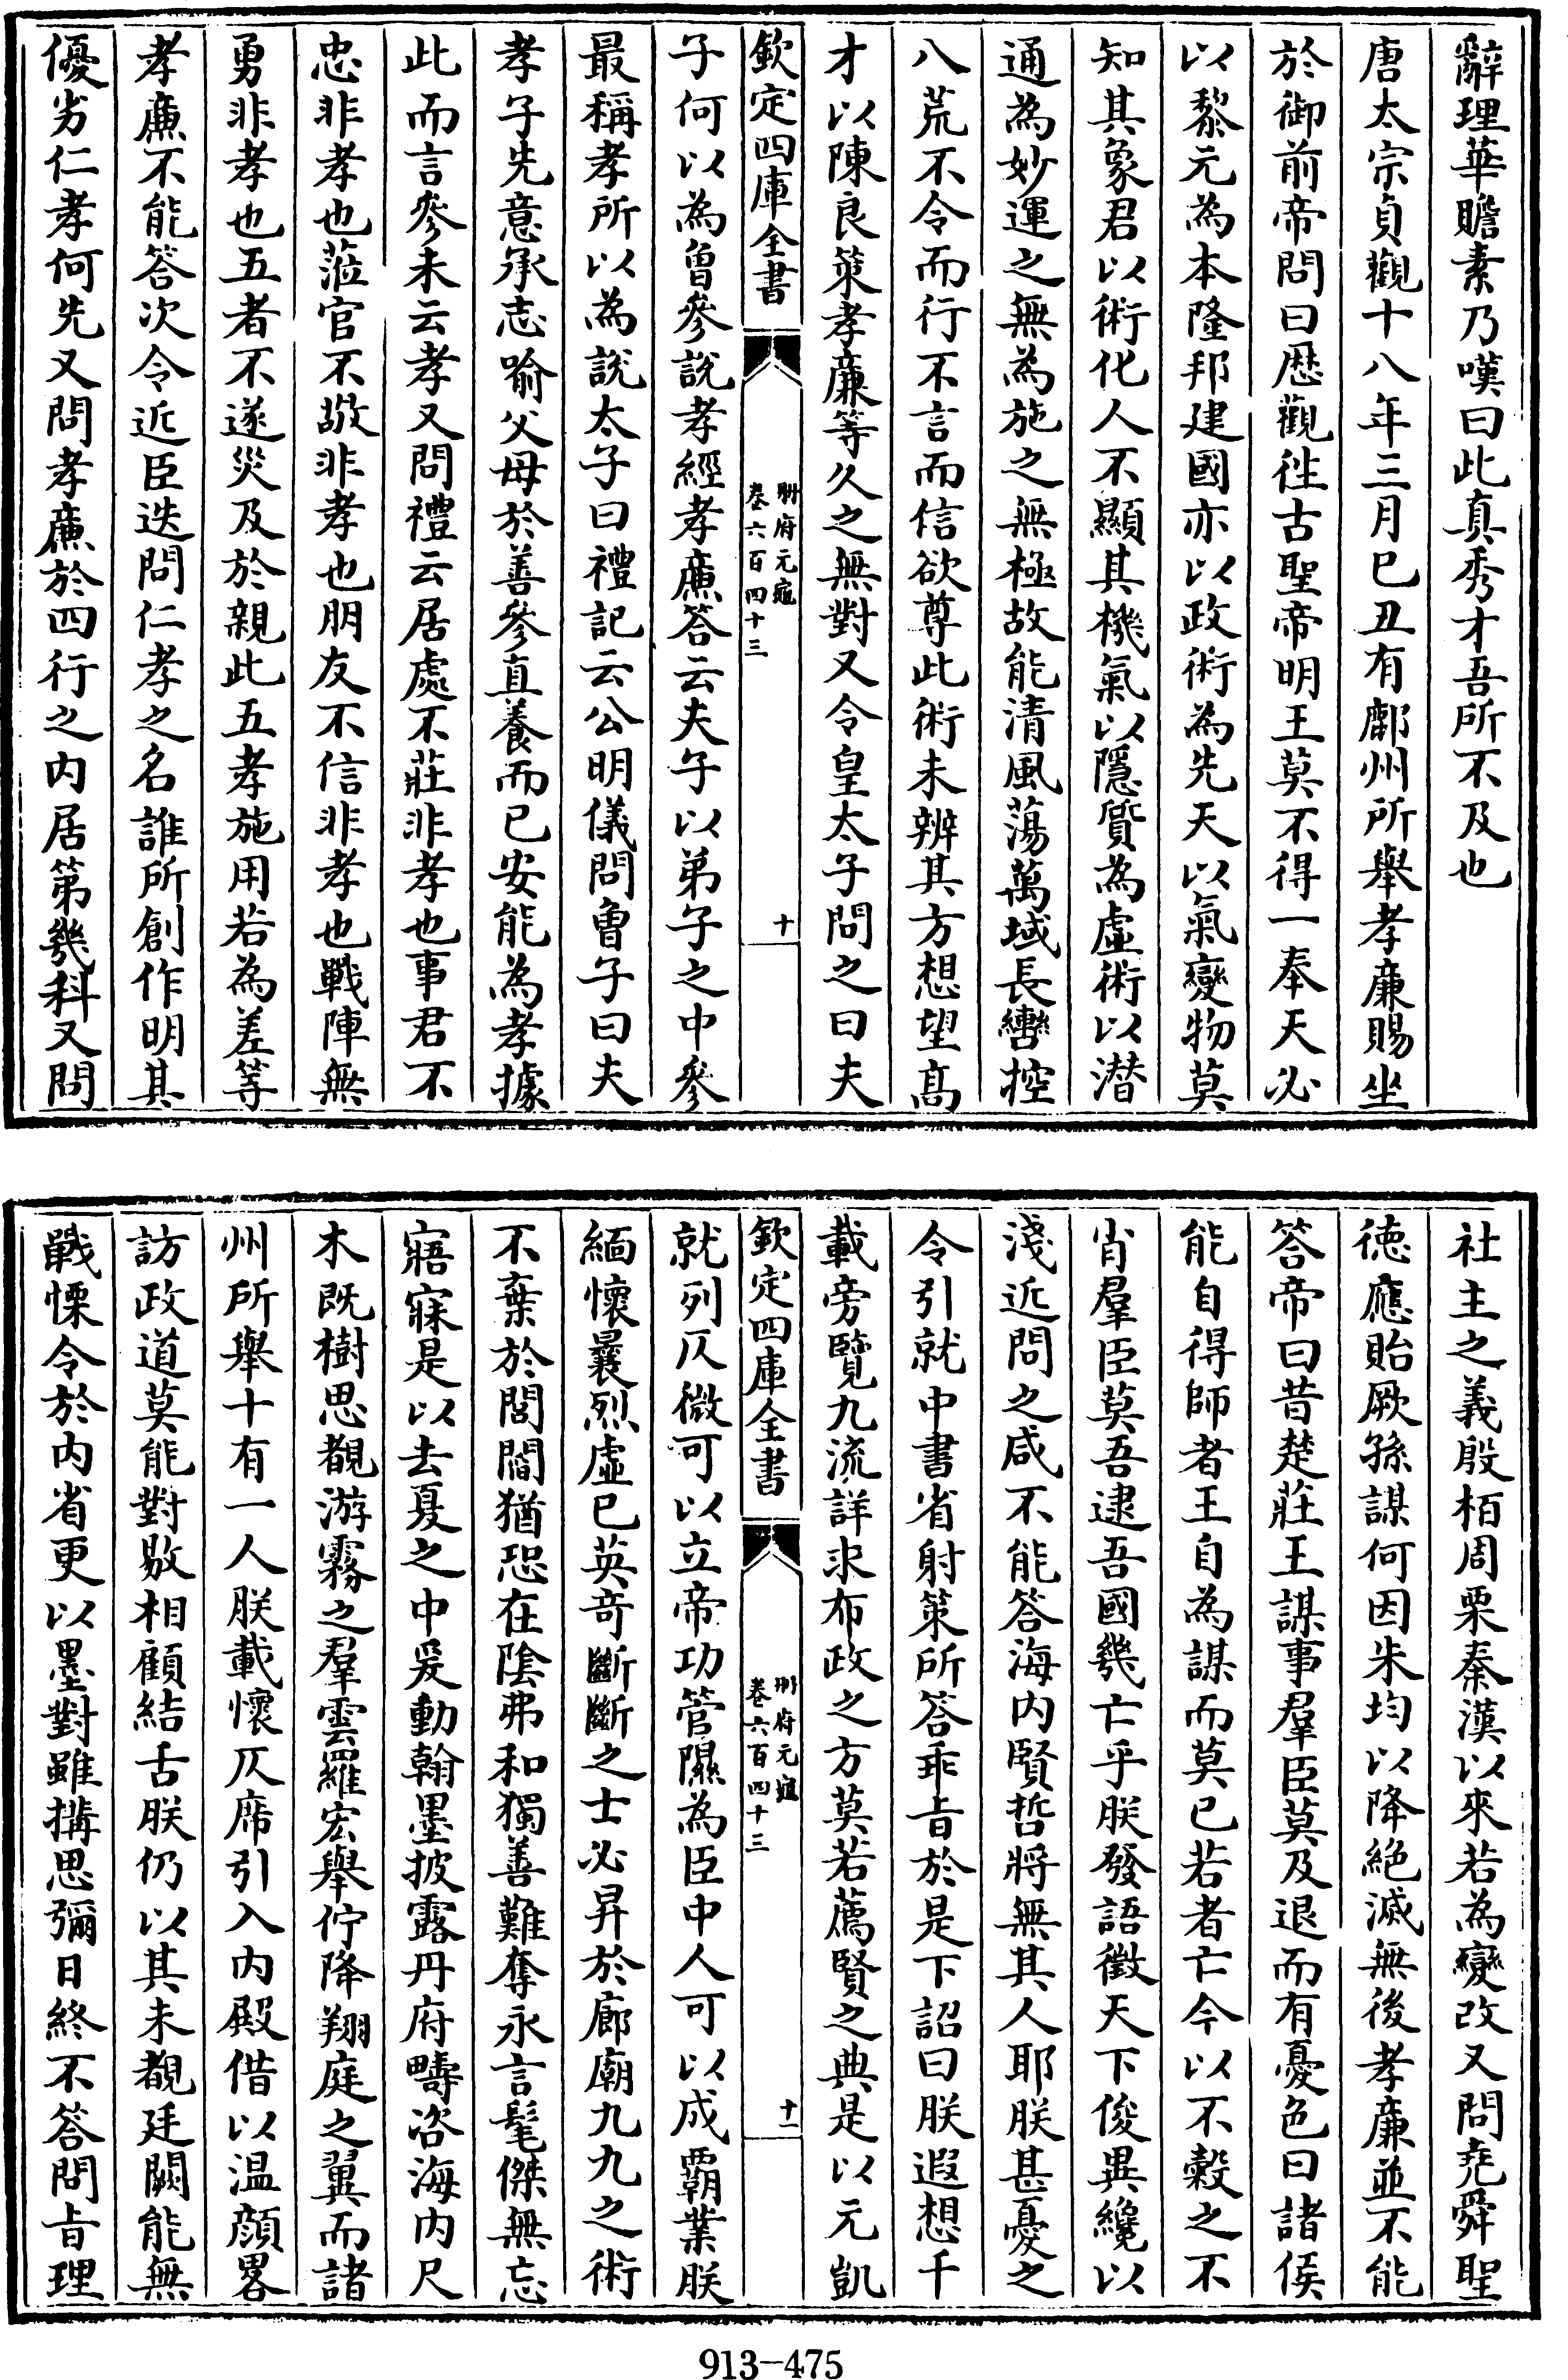 辭理華贍素乃嘆曰此真秀才吾所不及也
唐太宗貞觀十八年三月巳丑有鄜州所舉孝廉賜坐
於御前帝問曰歴觀徃古聖帝明王莫不得一奉天必
以黎元為本隆邦建國亦以政術為先天以氣變物莫
知其象君以術化人不顯其機氣以隱質為虛術以潜
通為妙運之無為施之無極故能清風蕩萬域長轡控
八荒不令而行不言而信欲尊此術未辨其方想望髙
才以陳良策孝廉等久之無對又令皇太子問之曰夫
欽定四庫全書
冊府元龜
卷六百四十三
十
子何以為曾參說孝經孝廉答云夫子以弟子之中參
最稱孝所以為說太子曰禮記云公明儀問曾子曰夫
孝子先意承志喻父母於善參直養而已安能為孝據
此而言參未云孝又問禮云居處不莊非孝也事君不
忠非孝也蒞官不敬非孝也朋友不信非孝也戰陣無
勇非孝也五者不遂災及於親此五孝施用若為差等
孝廉不能答次令近臣迭問仁孝之名誰所創作明其
優劣仁孝何先又問孝廉於四行之内居第幾科又問
社主之義殷栢周栗秦漢以來若為變改又問堯舜聖
徳應貽厥孫謀何因朱均以降絶滅無後孝廉並不能
答帝曰昔楚莊王謀事羣臣莫及退而有憂色曰諸侯
能自得師者王自為謀而莫已若者亡今以不穀之不
肖羣臣莫吾逮吾國幾亡乎朕發語徵天下俊異纔以
淺近問之咸不能答海内賢哲將無其人耶朕甚憂之
令引就中書省射策所答乖㫖於是下詔曰朕遐想千
載旁覽九流詳求布政之方莫若薦賢之典是以元凱
欽定四庫全書
冊府元龜
卷六百四十三
十一
就列仄微可以立帝功管隰為臣中人可以成霸業朕
緬懷曩烈虛已英竒斷斷之士必昇於廊廟九九之術
不棄於閭閻猶恐在陰弗和獨善難奪永言髦傑無忘
寤寐是以去夏之中爰動翰墨披露丹府疇咨海内尺
木既樹思覩游霧之羣雲羅宏舉佇降翔庭之翼而諸
州所舉十有一人朕載懷仄席引入内殿借以温顔畧
訪政道莫能對敭相顧結舌朕仍以其未覩廷闕能無
戰慄令於内省更以墨對雖搆思彌日終不答問㫖理
913-475